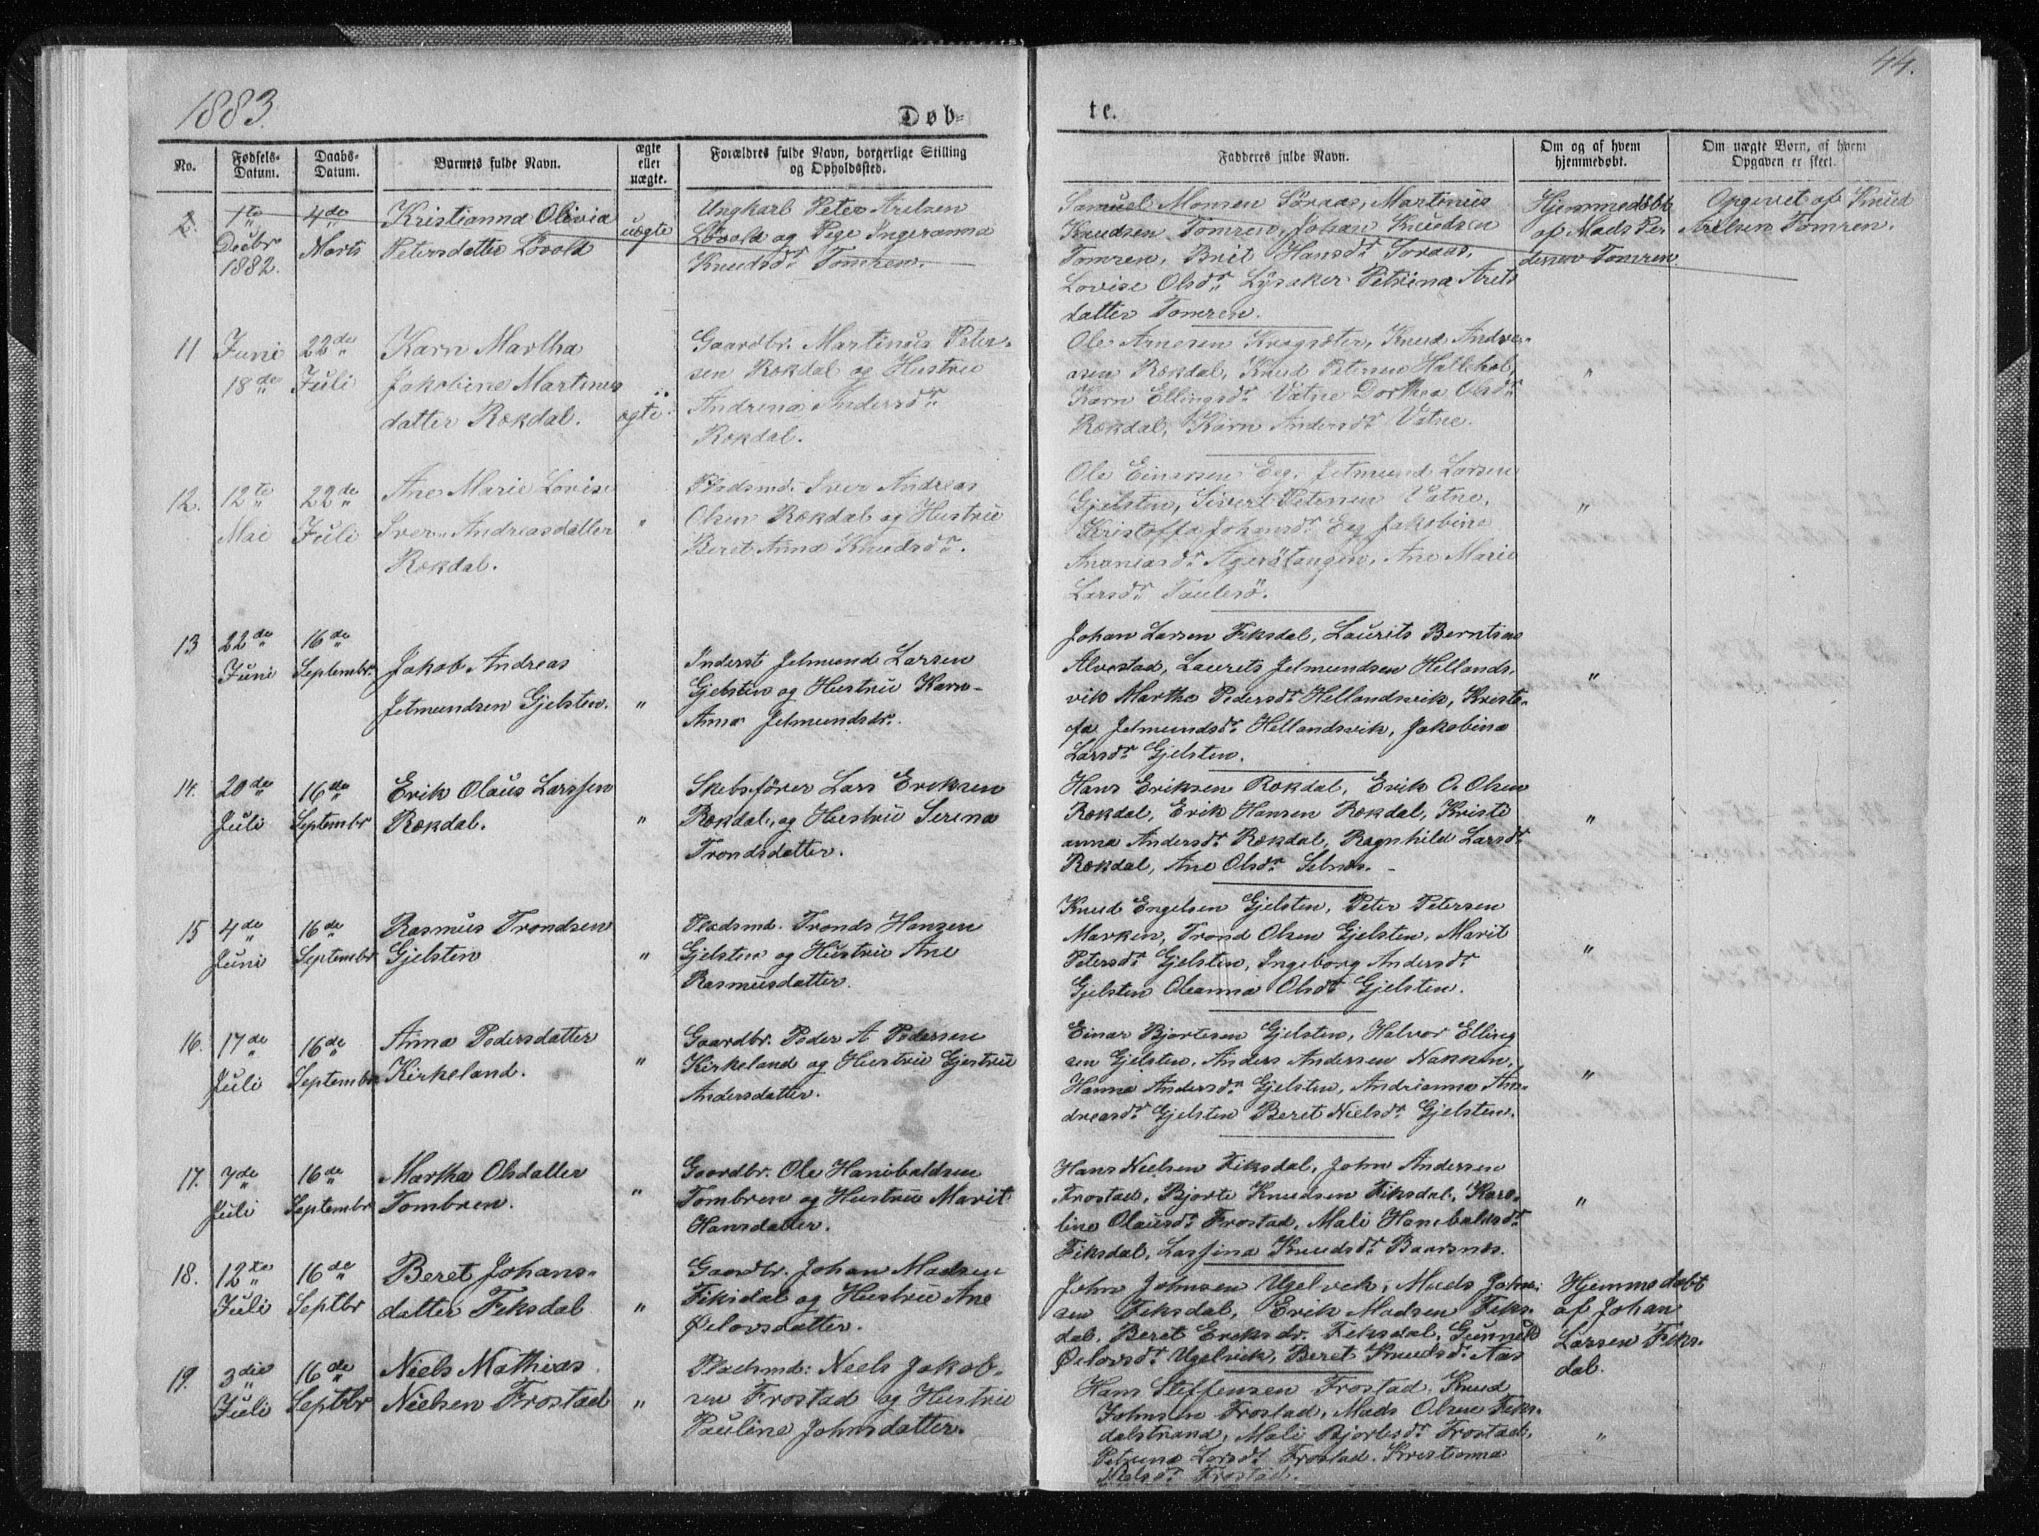 1883.
Døb-
te.
44.
No.
Fødsels-Datum.
Daabs-Datum.
Barnets fulde Navn.
ægte eller uægte.
Forældres fulde Navn, borgerlige Stilling og Opholdssted.
Fadderes fulde Navn.
Om og af hvem hjemmedøbt.
Om uægte Børn, af hvem Opgaven er skeet.
2.
1te Decbr 1882.
4de Marts
Kristianna Olivia
Petersdatter Lövold
uægte
Ungkarl Peter Arelsen
Lövold og Pige Ingeranna
Knudsdr Tomren.
Samuel Monsen Söraas, Martinus
Knudsen Tomren, Johan Knudsen
Tomren, Brit Hansdr Soraas,
Lovise Olsdr Lysaker Petrina Arets
datter Tomren.
Hjemmedöbt
af Mads Pe-
dersen Tomren
Opgivet af Knud
Arelsen Tomren.
11
Juni 18de
22de Juli
Karn Martha
Jakobine Martinus
datter Rekdal.
ægte.
Gaardbr. Martinus Peter-
sen Rekdal og Hustru
Andrina Andersdr
Rekdal.
Ole Arnesen Kragsæter, Knud Andre-
asen Rekdal, Knud Petersen Hallehol,
Karn Ellingsdr Vatne Dorthea Olsdr
Rekdal, Karn Andersdr Vatne.
"
12.
12te Mai
22de Juli
Ane Marie Lovise
Iver Andreasdatter
Rekdal.
"
Pladsmd. Iver Andreas
Olsen Rekdal og Hustru
Beret Anna Knudsdr.
Ole Einersen Eeg, Jetmund Larsen
Gjelsten, Sivert Petersen Vatne,
Kristoffa Johansdr Eeg Jakobine
Ananiasdr Agerötangen, Ane Marie
Larsdr Tautesö.
"
13
22de Juni
16de Septembr.
Jakob Andreas
Jetmundsen Gjelsten.
"
Inderst Jetmund Larsen
Gjelsten og Hustru Karn-
Anna Jetmundsdr.
Johan Larsen Fiksdal, Laurits Berntsen
Alvestad, Laurets Jetmundsen Hellands-
vik Martha Pedersdr Hellandsvik, Kristo-
fa Jetmundsdr Hellandsvik, Jakobina
Larsdr Gjelsten.
"
14.
20de Juli
16de Septembr
Erik Olaus Larssen
Rekdal.
"
Skebsförer Lars Eriksen
Rekdal, og Hustru Serina
Trondsdatter.
Hans Eriksen Rekdal, Erik O. Olsen
Rekdal, Erik Hansen Rekdal, Kristi
anna Andersdr Rekdal, Ragnhild Larsdr
Rekdal, Ane Olsdr Selnes.
"
15
4de Juni
16de Septembr
Rasmus Trondsen
Gjelsten
"
Pladsmd. Tronds Hansen
Gjelsten og Hustru Ane
Rasmusdatter.
Knud Engelsen Gjelsten, Peter Petersen
Marken, Trond Olsen Gjelsten, Marit
Petersdr Gjelsten, Ingeborg Andersdr
Gjelsten Oleanna Olsdr Gjelsten.
"
16.
17de Juli
16de Septembr
Anna Pedersdatter
Kirkeland.
"
Gaardbr. Peder A Pedersen
Kirkeland og Hustru Gjertru
Andersdatter.
Einar Bjortesen Gjelsten, Halvor Elling
sen Gjelsten, Anders Andersen Nakken,
Hanna Andersdr Gjelsten, Andrianna An-
dreasdr Gjelsten Beret Nielsdr Gjelsten.
"
17.
7de Juli
16de Septembr
Martha Olsdatter
Tombren.
"
Gaardbr. Ole Hanibaldsen
Tombren og Hustru Marit
Hansdatter.
Hans Nielsen Fiksdal, John Andersen
Frostad, Bjorte Knudsen Fiksdal, Karo-
line Olausdr Frostad, Mali Hanibaldsdr
Fiksdal, Lassina Knudsdr Baarsnes.
"
18.
12te Juli
16de Septbr
Beret Johans-
datter Fiksdal
"
Gaardbr. Johan Madsen
Fiksdal og Hustru Ane
Ørlovsdatter.
John Johnsen Ugelvik, Mads John-
sen Fiksdal, Erik Madsen Fiks-
dal, Beret Eriksdr. Fiksdal, Gunnild
Ørlovsdr Ugelvik, Beret Knudsdr Aas
Hjemmedöbt
af Johan
Larsen Fiks-
dal.
19.
3die Juli
16de Septbr
Niels Mathias
Nielsen Frostad
"
Pladsmd: Neels Jakob-
sen Frostad og Hustru
Pauline Johnsdatter.
Hans Steffensen Frostad, Knud
Johnsen Frostad, Mads Olsen Fiks-
dalstrand, Mali Bjortesdr Frostad,
Petrina Larsdr Frostad, Kristianna
Nielsdr Frostad.
"